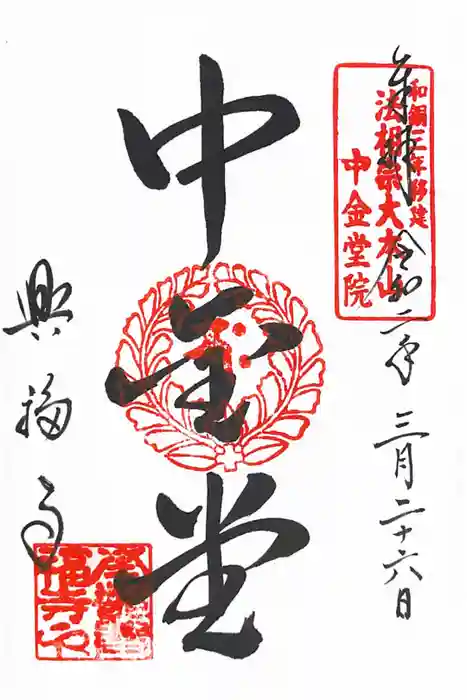 奉拝 令和二年 三月二十六日
和銅三年移建
法相宗大本山
中金堂院
中金堂
興福寺